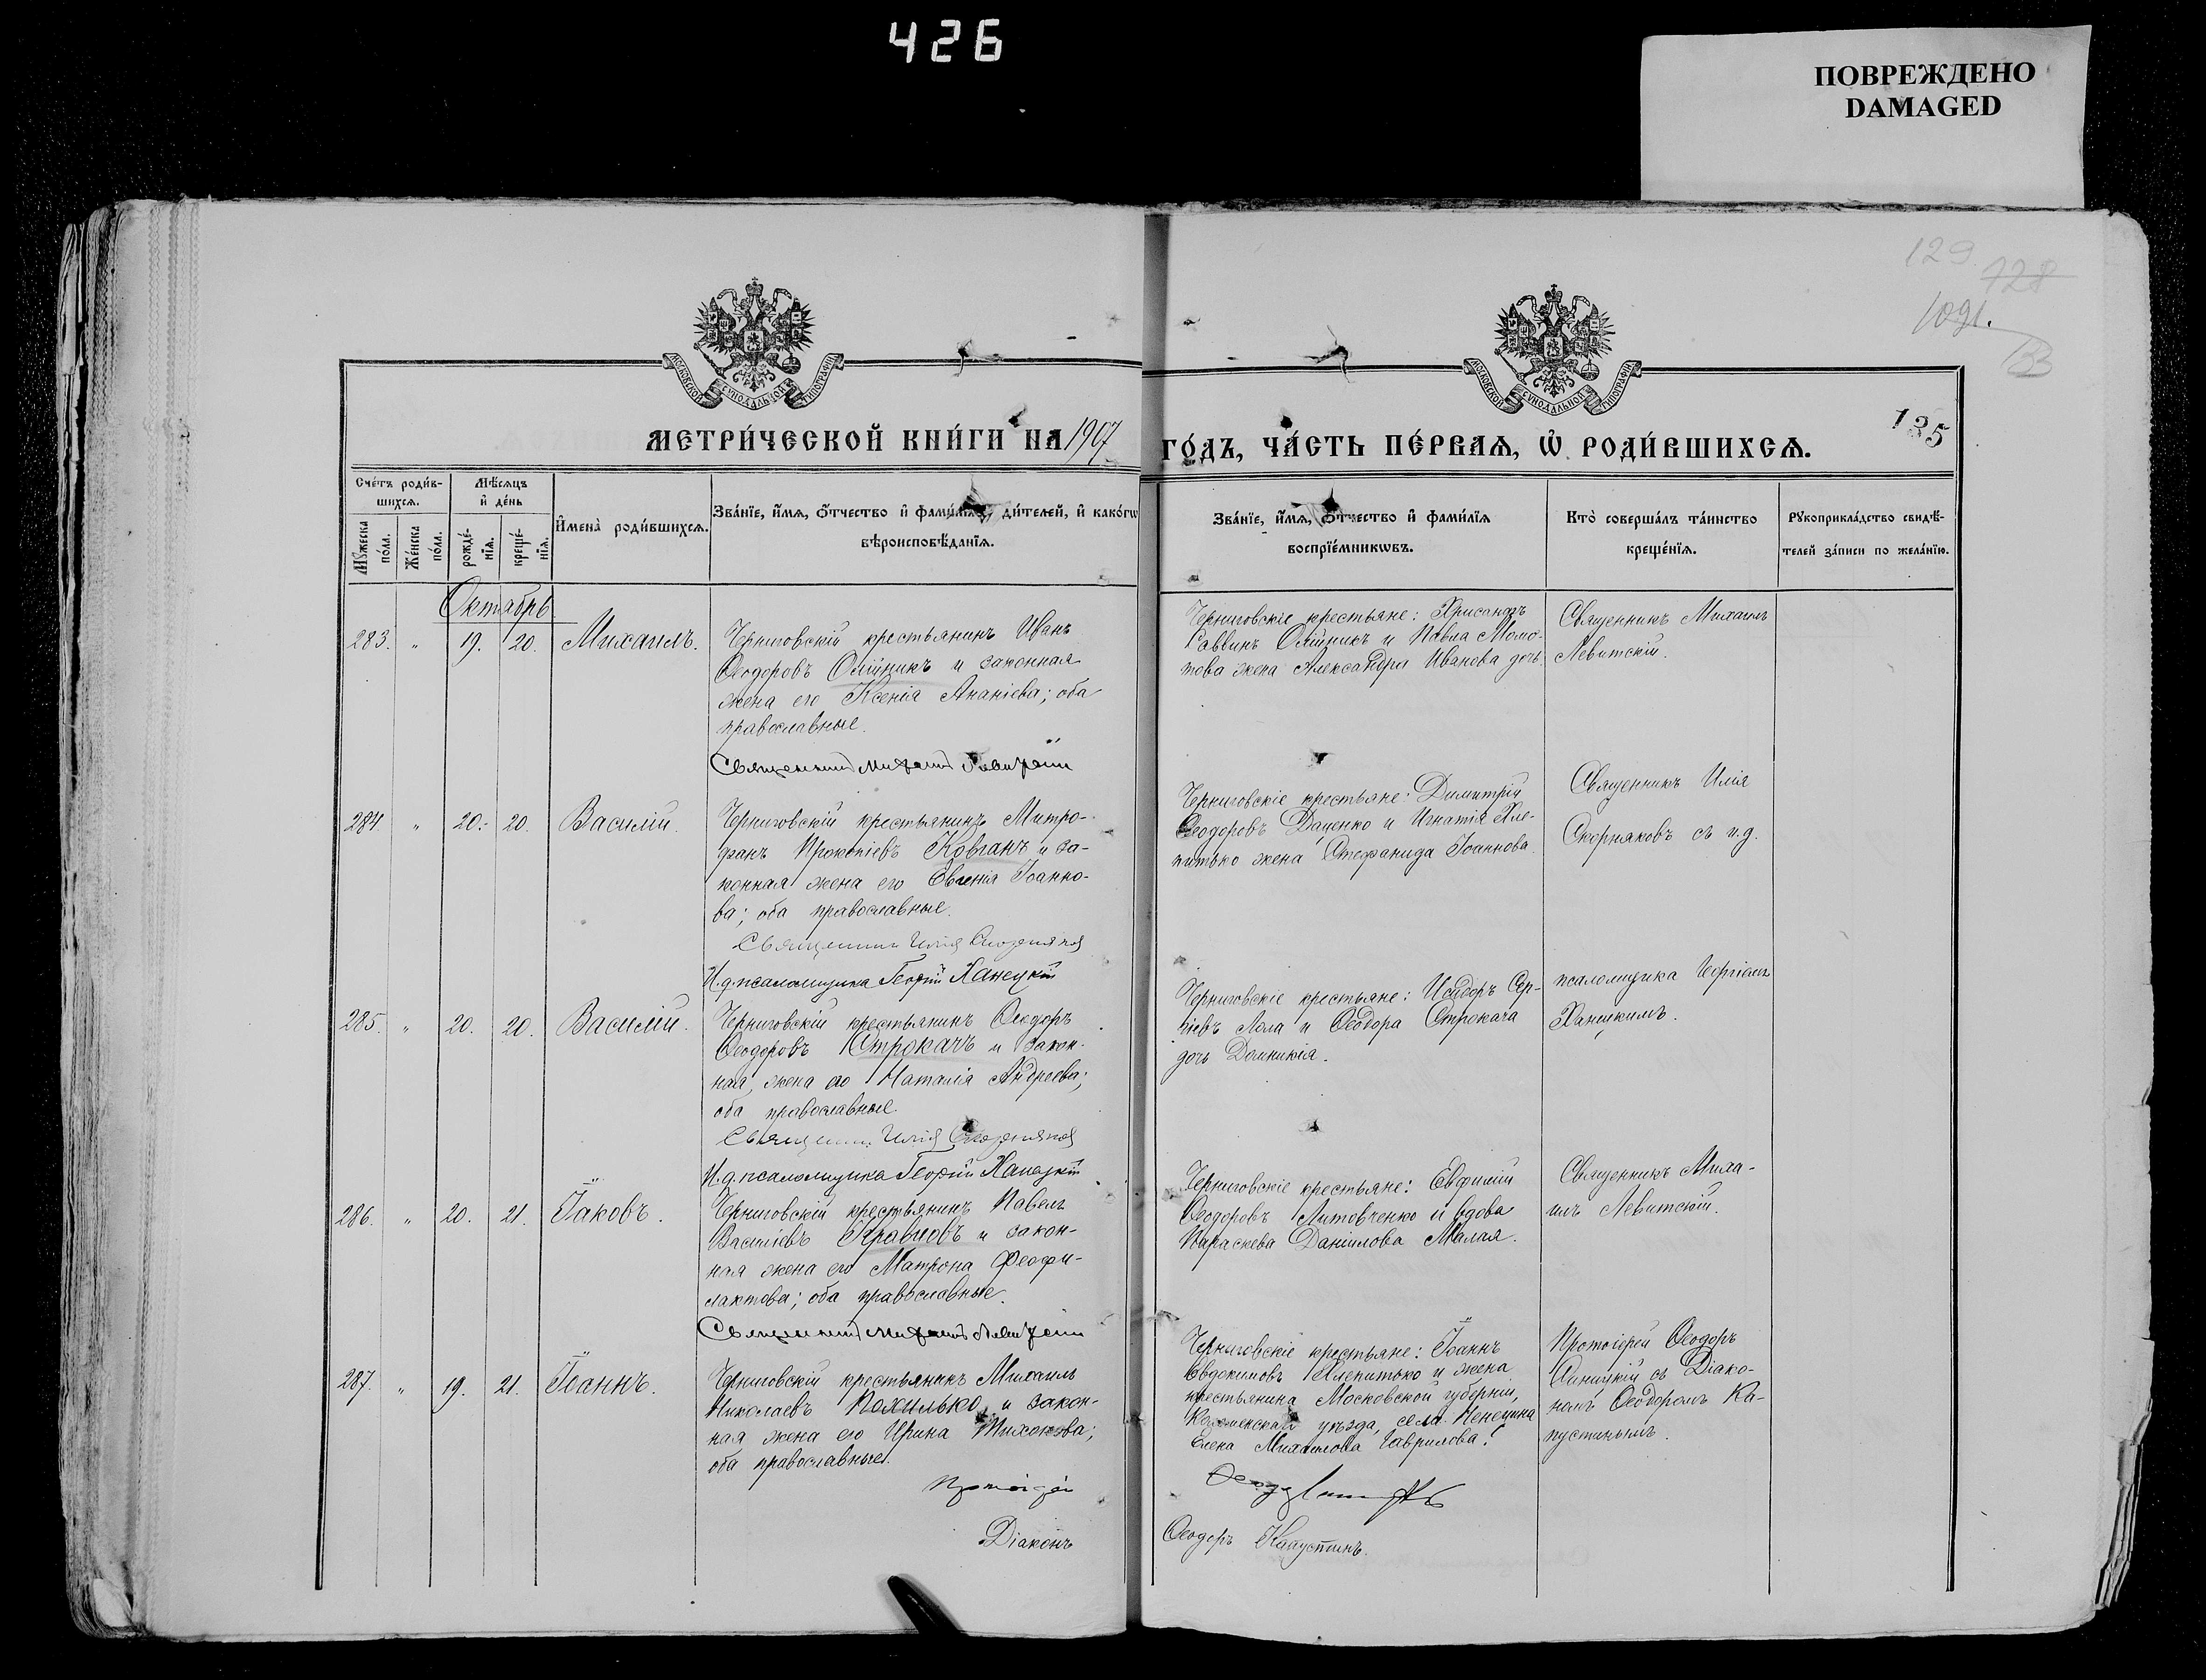 426
ПОВРЕЖДЕНО
DAMAGED
129.
128
1091.
133
135
МОСКОВСКОЙ СѴНОДАЛЬНОЙ ТИПОГРАФІИ
МОСКОВСКОЙ СѴНОДАЛЬНОЙ ТИПОГРАФІИ
МЕТРИ́ЧЕСКОЙ КНИ́ГИ НА 1907 ГО́ДЪ, ЧА́СТЬ ПЕ́РВАѦ, Ѡ҆ РОДИ́ВШИХСѦ.
Сче́тъ роди́в-
шихсѧ.
Мꙋ́жеска по́ла.
Же́нска по́ла.
Мѣ́сѧцъ
и҆ де́нь
рожде́-
нїѧ.
креще́-
нїѧ.
И҆мена̀ роди́вшихсѧ.
Зва́нїе, и҆́мѧ, ѻ҆́тчество и҆ фами́лїѧ роди́телей, и҆ како́гѡ
вѣроисповѣ́данїѧ.
Зва́нїе, и҆́мѧ, ѻ҆́тчество и҆ фами́лїѧ
воспрїе́мникѡвъ.
Кто̀ соверша́лъ та́инство
креще́нїѧ.
Рꙋкоприкла́дство свидѣ́-
телей за́писи по жела́нїю.
Октябрь
283. " 19. 20. Михаилъ.
Черниговскій крестьянинъ Иванъ
Ѳеодоровъ Олійникъ и законная
жена его Ксенія Ананіева; оба
православные.
Священникъ Михаилъ Левитскій
Черниговскіе крестьяне: Хрисанфъ
Саввинъ Олійникъ и Павла Момо-
това жена Александра Иванова дочь.
Священникъ Михаилъ
Левитскій.
284. " 20. 20. Василій.
Черниговскій крестьянинъ Митро-
фанъ Прокопіевъ Ковганъ и за-
конная жена его Евгенія Іоанно-
ва; оба православные.
Священникъ Илія Скорняковъ
И.д. псаломщика Георгій Ханецкій
Черниговскіе крестьяне: Димитрій
Ѳеодоровъ Даценко и Игнатія Хле-
питько жена Стефанида Іоаннова.
Священникъ Илія
Скорняковъ съ и.д.
285. " 20. 20. Василій.
Черниговскій крестьянинъ Ѳеодоръ
Ѳеодоровъ Строкачъ и закон-
ная жена его Наталія Андреева;
оба православные.
Священникъ Илія Скорняковъ
И.д. псаломщика Георгій Ханецкій
Черниговскіе крестьяне: Исидоръ Сер-
гіевъ Лола и Ѳеодора Строкача
дочь Домникія.
псаломщика Георгіемъ
Ханецкимъ.
286. " 20. 21. Іаковъ.
Черниговскій крестьянинъ Павелъ
Василіевъ Кравцовъ и закон-
ная жена его Матрона Феофи-
лактова; оба православные.
Священникъ Михаилъ Левитскій
Черниговскіе крестьяне: Евфимій
Ѳеодоровъ Литовченко и вдова
Параскева Даніилова Малая.
Священникъ Миха-
илъ Левитскій.
287. " 19. 21. Іоаннъ.
Черниговскій крестьянинъ Михаилъ
Николаевъ Похилько и закон-
ная жена его Ирина Тихонова;
оба православные.
Протоіерей
Діаконъ
Черниговскіе крестьяне: Іоаннъ
Евдокимовъ Хлепитько и жена
крестьянина Московской губерніи,
Коломенскаго уѣзда, села Ненецина
Елена Михаилова Гаврилова.
Ѳеодоръ Капустинъ.
Протоіерей Ѳеодоръ
съ Діако-
номъ Ѳеодоромъ Ка-
пустинымъ.